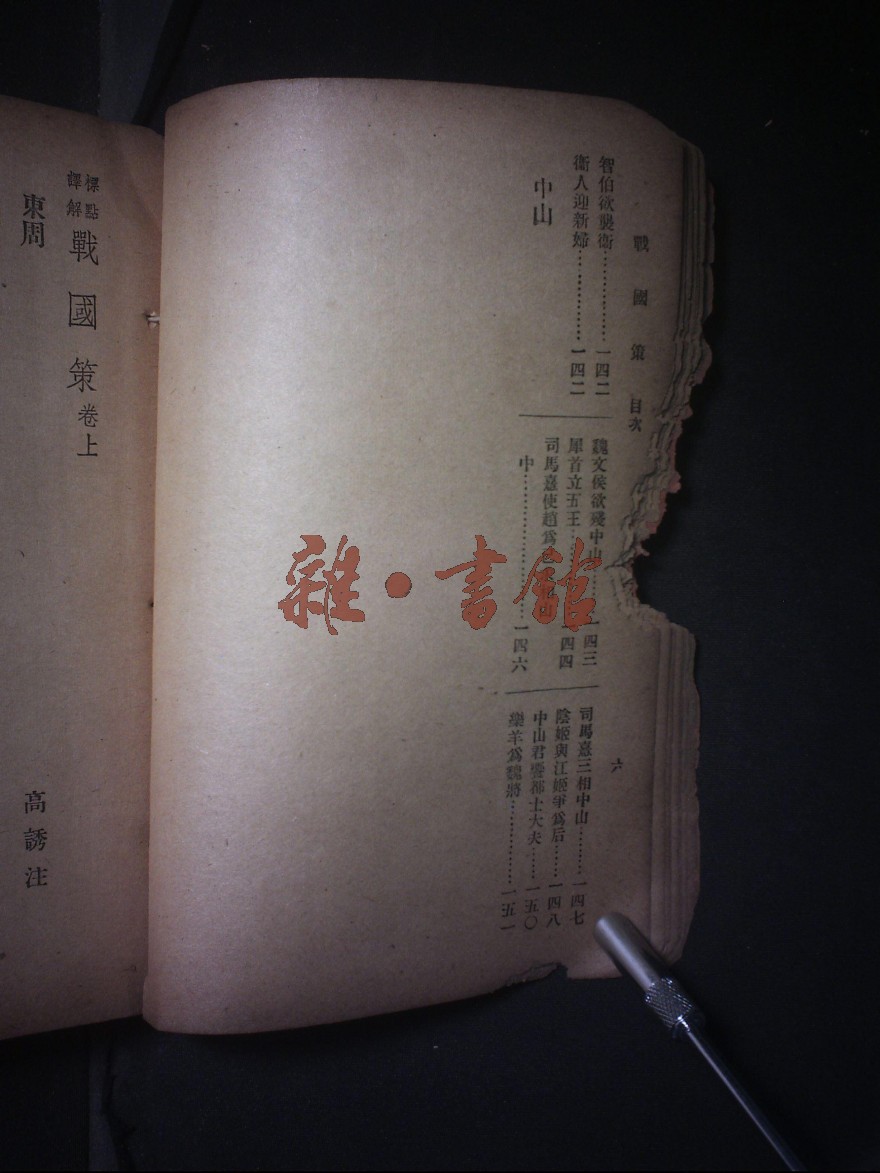 戰國策 目次
智伯欲襲衞……………一四二
衞人迎新婦……………一四二
中山
魏文侯欲殘中山……一四三
犀首立五王……一四四
司馬憙使趙爲
中……………………一四六
司馬憙三相中山………一四七
陰姬與江姬爭爲后……一四八
中山君饗都士大夫……一五〇
樂羊爲魏將……………一五一
六
標點
譯解
戰國策卷上
東周
高誘注
雜·書館